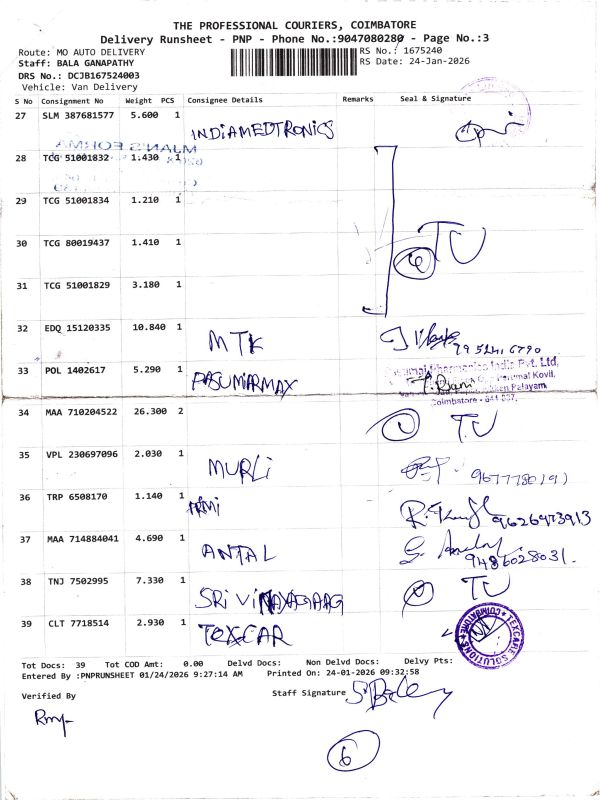 THE PROFESSIONAL COURIERS, COIMBATORE
Delivery Runsheet - PNP - Phone No.:9047080280 - Page No.:3
Route: MO AUTO DELIVERY
RS No.: 1675240
Staff: BALA GANAPATHY
RS Date: 24-Jan-2026
DRS No.: DCJB167524003
Vehicle: Van Delivery
S No Consignment No Weight PCS Consignee Details Remarks Seal & Signature
27 SLM 387681577 5.600 1 INDIAMEDTRONICS
28 TCG 51001832 1.430 1
29 TCG 51001834 1.210 1
30 TCG 80019437 1.410 1 TU
31 TCG 51001829 3.180 1
32 EDQ 15120335 10.840 1 MTK
33 POL 1402617 5.290 1
Pharmanics India Pvt. Ltd,
Coimbatore - 641 037.
34 MAA 710204522 26.300 2 1 TU
35 VPL 230697096 2.030 1 MURLi
36 TRP 6508170 1.140 1 9626973913
37 MAA 714884041 4.690 1 ANTAL 9486028031.
38 TNJ 7502995 7.330 1 SRI TU
39 CLT 7718514 2.930 1 TEXCAR
TEXCARE SOLUTIONS COIMBATORE
Tot Docs: 39 Tot COD Amt: 0.00 Delvd Docs: Non Delvd Docs: Delvy Pts:
Entered By :PNPRUNSHEET 01/24/2026 9:27:14 AM Printed On: 24-01-2026 09:32:58
Verified By Staff Signature
6